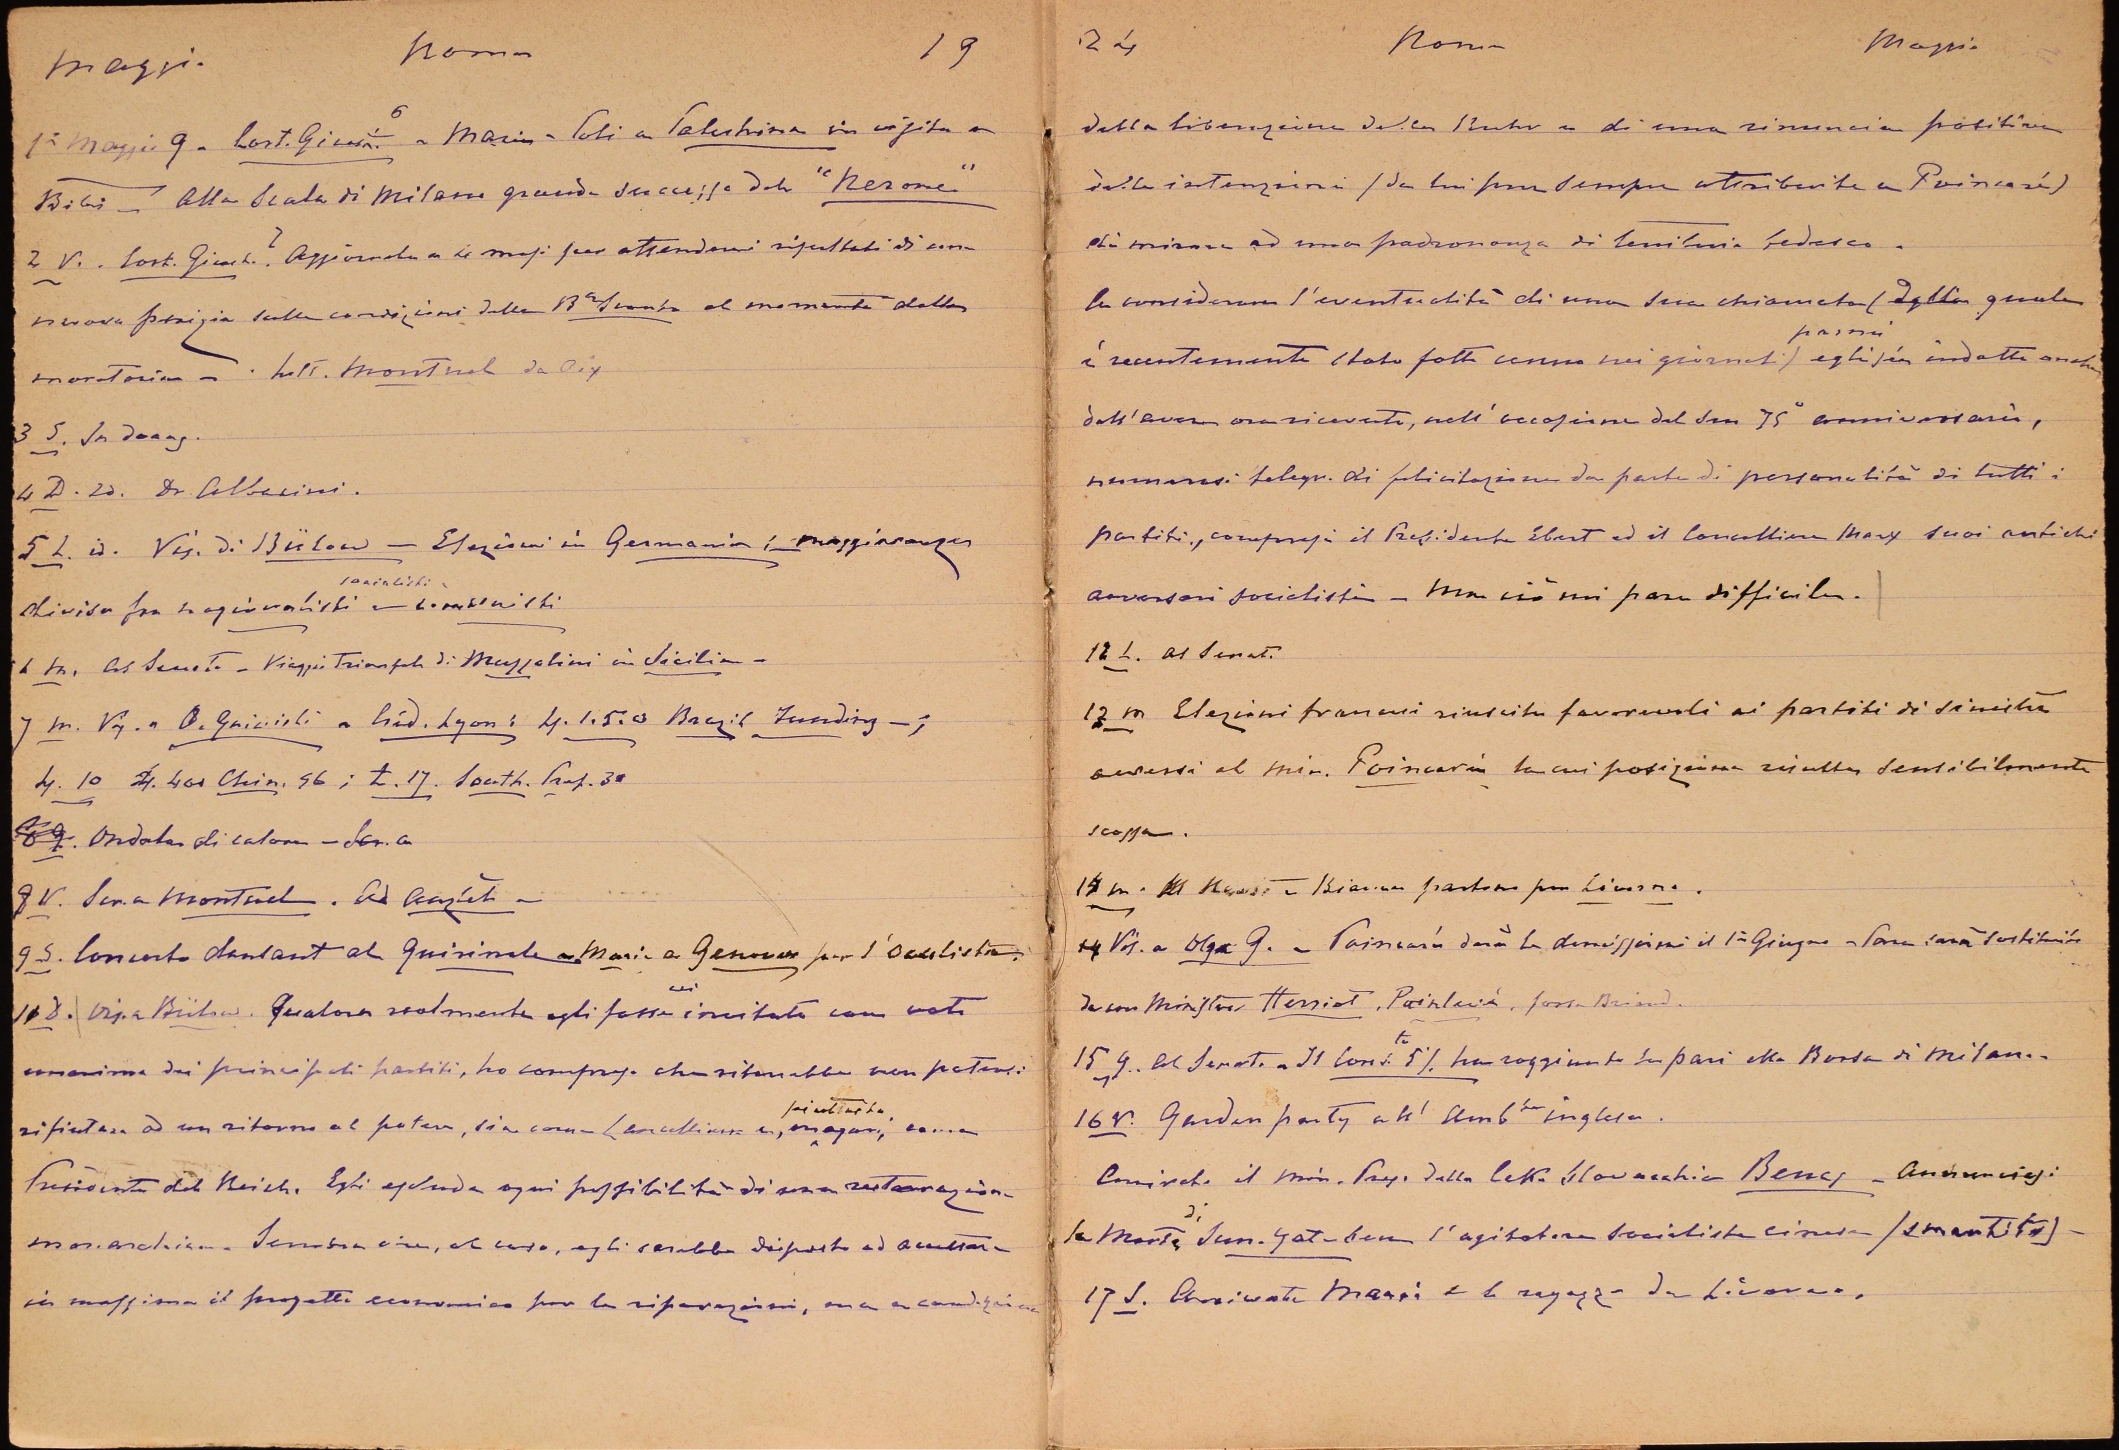 Maggio Roma 19
1° Maggio G. Cost. Giud. 6 - Maria - Toti a Palestrina in visita a
Bibi - Alla Scala di Milano grande successo del "Nerone"
2 V. Cost. Giud. 7 Aggiornata a 4 mesi per attendervi risultati di una
nuova perizia sulle condizioni della B.ca Sconto al momento della
moratoria - Lett. Montuel da Aix
3 S.
4 D. id. Dr. Albasini.
5 L. id. Vis. di Bülow - Elezioni in Germania; maggioranza
divisa fra nazionalisti socialisti e comunisti
6 M. Al Senato - Viaggio trionfale di Mussolini in Sicilia -
7 M. Vis. a O. Giud. Lyon: L. 1.5.0 Brazil Funding - ;
L. 10 L. 400 Chin. 96; L. 17. South. Pref. 30
8 G. Ondata di calore - Scr. a
8 V. Scr. a Montuel. Ad
9 S. Concerto dansant al Quirinale - Maria a Genova per l'oculista.
11 D. Vis. a Bülow. Qualora realmente egli fosse ivi invitato con voto
unanime dei principali partiti, ho compreso che riterrebbe non potersi
rifiutare ad un ritorno al potere, sia come Cancelliere o, piuttosto, magari, come
Presidente del Reich. Egli esclude ogni possibilità di una restaurazione
monarchica. Sembra che, al caso, egli sarebbe disposto ad accettare
in massima il progetto economico per le riparazioni, ma a condizione
24 Roma Maggio
della liberazione della Ruhr e di una rinuncia positiva
delle intenzioni (da lui pure sempre attribuite a Poincaré)
di mirare ad una padronanza di territorio tedesco.
Le considerare l'eventualità di una sua chiamata (della quale
è recentemente stato fatto cenno nei giornali) parmi egli sia indotto anche
dall'avere ora ricevuto, nell'occasione del suo 75° anniversario,
numerosi telegr. di felicitazione da parte di personalità di tutti i
partiti, compresi il Presidente Ebert ed il Cancelliere Marx suoi antichi
avversari socialisti - Ma ciò mi pare difficile.
12 L. Al Senato
13 M Elezioni francesi riuscite favorevoli ai partiti di sinistra
avversi al min. Poincaré la cui posizione risulta sensibilmente
scossa.
14 M. Bianca partono per Livorno.
14 Vis. a Olga G. - Poincaré darà le dimissioni il 1° Giugno - Pare sarà sostituito
da un Ministero Herriot, Painlevé, forse Briand.
15 G. Al Senato - Il Cons.to 5% ha raggiunto la pari alla Borsa di Milano.
16 V. Garden party all'Amb.ta inglese.
Conivato il Min. Pres. della Ceko Slovacchia Benes - Annunciasi
la morte di Sun-Yat-Sen l'agitatore socialista cinese (smentito) -
17 S. Arrivate Maria e le ragazze da Livorno.